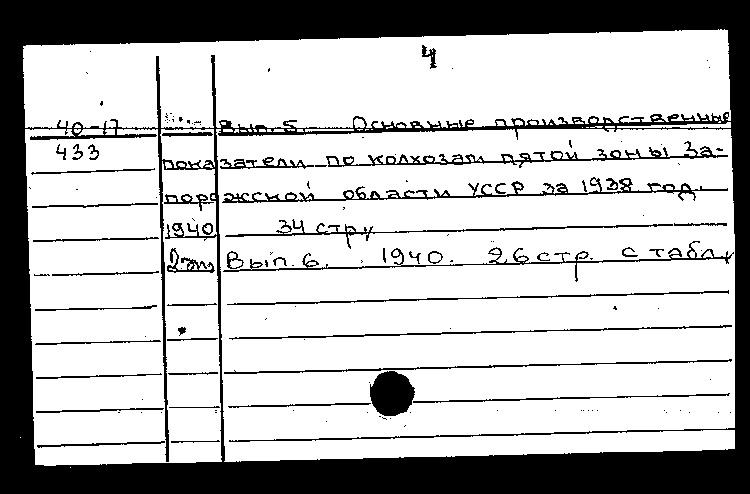 4
40-17 Вып. 5. Основные производственные
433 показатели по колхозам пятой зоны За-
порожской области УССР за 1938 год.
1940 34 стр.
2 эт. Вып. 6. 1940. 26 стр. с табл.